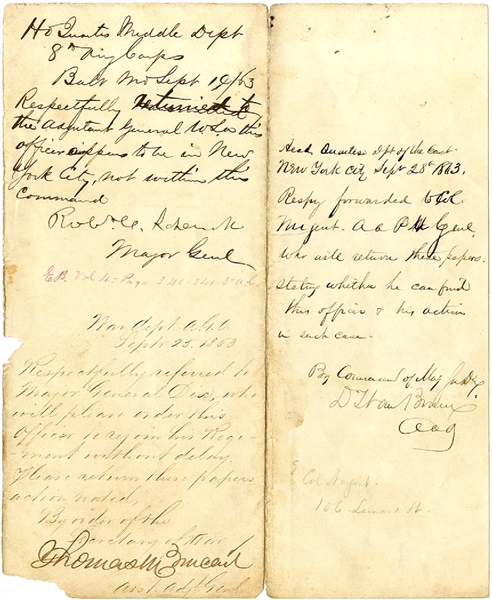 Hd Quarters Middle Dept
8th Army Corps
Balt Md Sept 19/63
Respectfully returned to
the Adjutant General U.S.A. this
officer appears to be in New
York City, not within this
Command
Robt. C. Schenck
Major Genl
E.B. Vol 4. Page 340-341. 8" A.C.
War Dept. A.G.O.
Sept. 23. 1863
Respectfully referred to
Major General Dix, who
will please order this
Officer to rejoin his Regi-
ment without delay.
Please return these papers
action noted,
By order of the
Secretary of War
Thomas M Vincent
Asst. Adjt Genl
Head Quarters Dpt of the East
New York City Sept 28th 1863.
Respy forwarded to Col
Nugent. A a P M Genl.
who will return these papers.
stating whether he can find
this officer & his action
in such case.
By Command of Maj Gn Dix
D T Van Buren
aag
Col Nugent.
106 Leonard St.